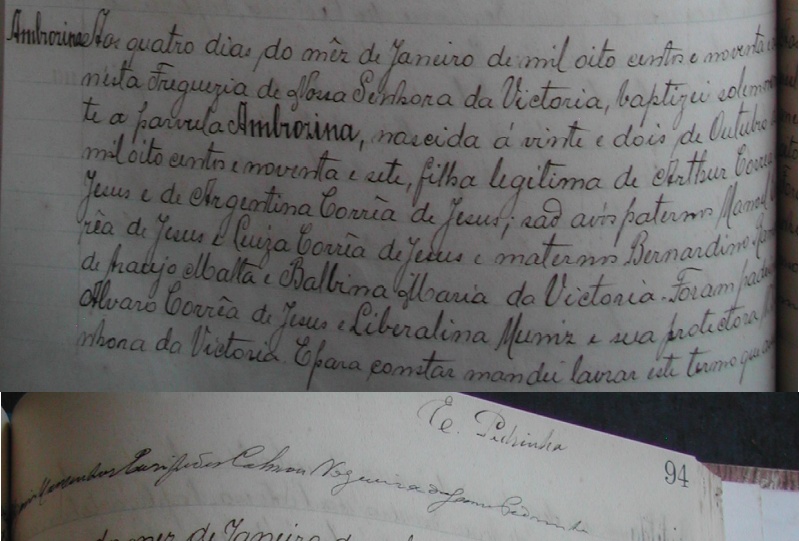 Ambrozina Aos quatro dias do mêz de Janeiro de mil oito centos e noventa e
nesta Freguezia de Nossa Senhora da Victoria, baptizei solemnemen
te a parvula Ambrozina, nascida á vinte e dois de Outubro
mil oito centos e noventa e sete, filha legitima de Arthur Corrêa
Jesus e de Argentina Corrêa de Jesus; saõ avós paternos Manoel
rêa de Jesus e Luiza Corrêa de Jesus e maternos Bernardino
de Araujo Malta e Balbina Maria da Victoria. Foram padri
Alvaro Corrêa de Jesus e Liberalina Muniz e sua protectora
nhora da Victoria. E para constar mandei lavrar este termo que
94
do mez de Janeiro de